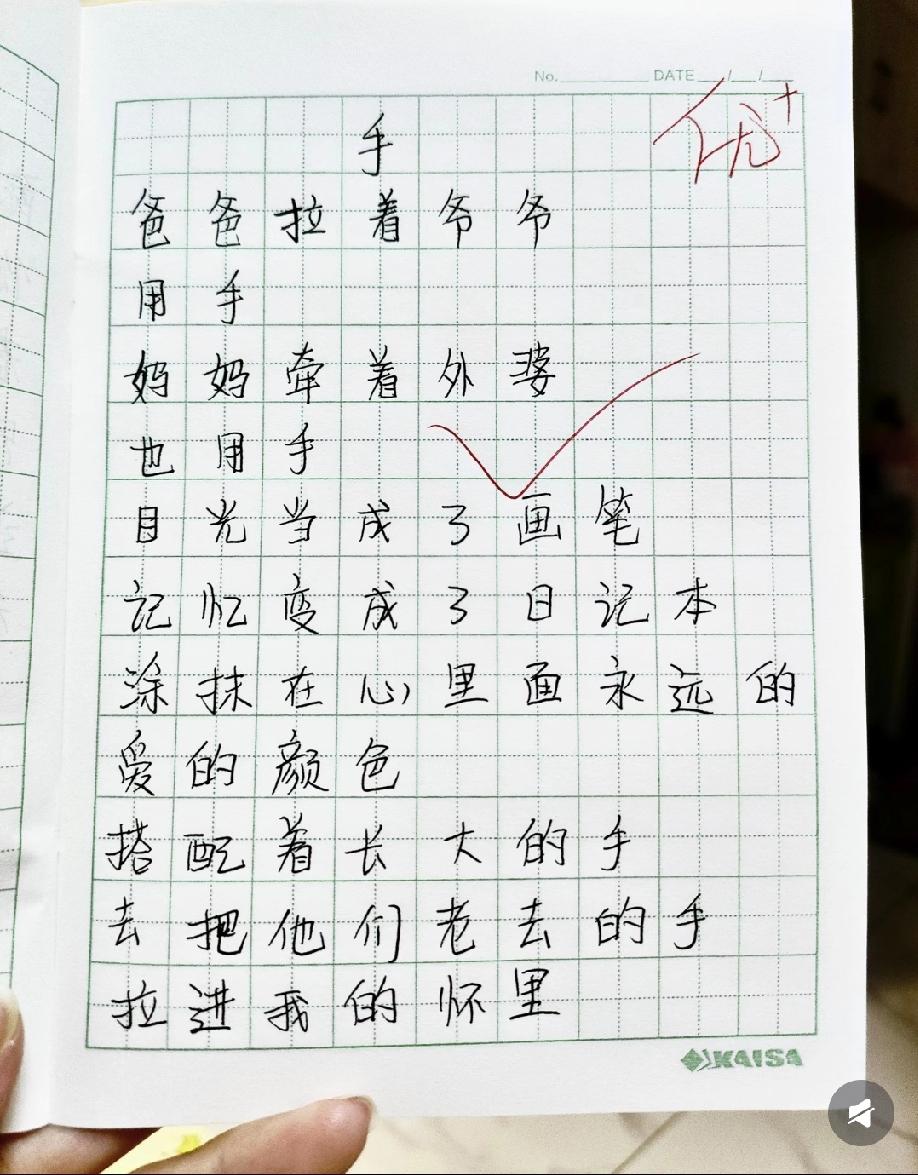 No. DATE / /
优+
手
爸爸拉着爷爷
用手
妈妈牵着外婆
也用手
目光当成了画笔
记忆变成了日记本
涂抹在心里面永远的
爱的颜色
搭配着长大的手
去把他们老去的手
拉进我的怀里
KAISA